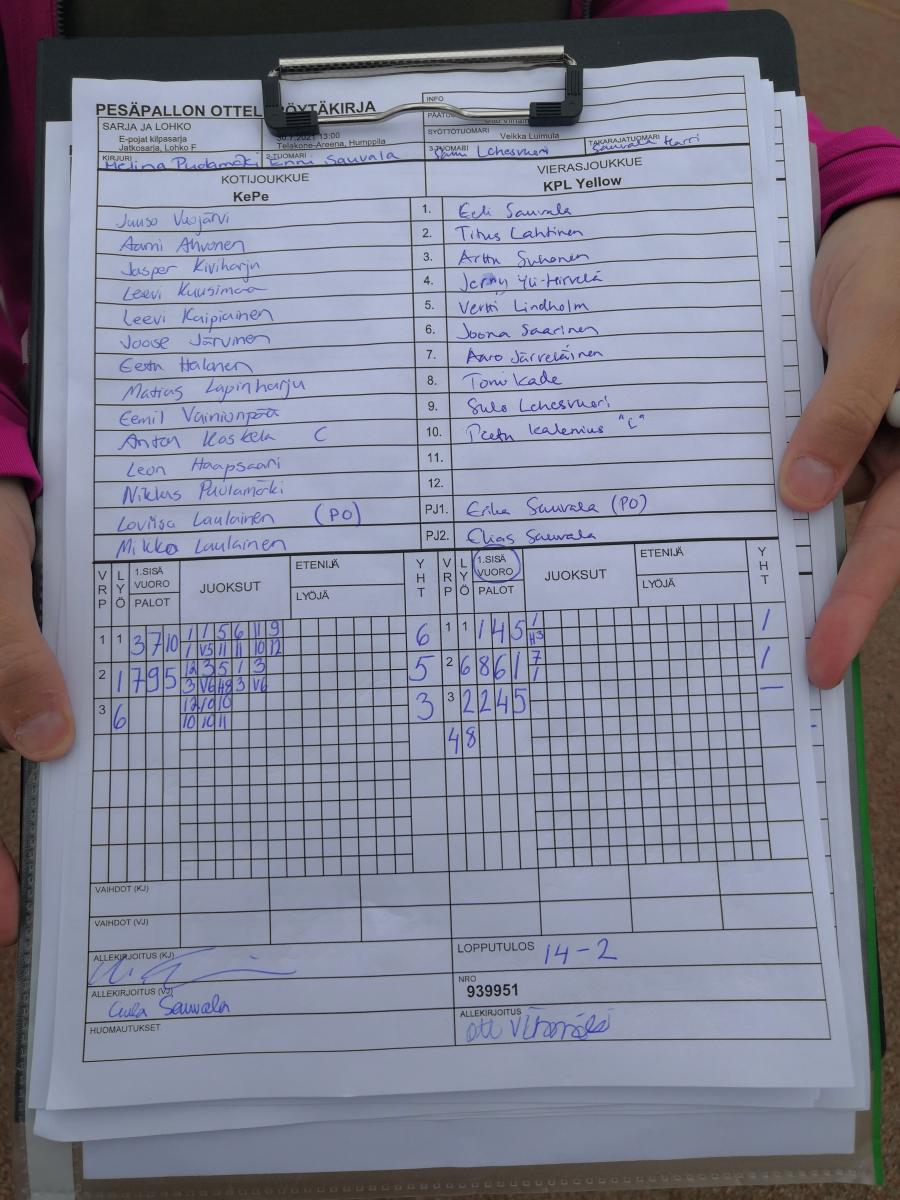 PESÄPALLON OTTEL ÖYTÄKIRJA
INFO
SARJA JA LOHKO
E-pojat kilpasarja
Jatkosarja, Lohko F
13:00
Telakone-Areena, Humppila
SYÖTTÖTUOMARI
Veikka Luimula
KIRJURI
Melina Puolamäki
2-TUOMARI
Enni Sauvala
3-TUOMARI
Lehesvuori
TAKARAJATUOMARI
Sauvala Harri
KOTIJOUKKUE
KePe
VIERASJOUKKUE
KPL Yellow
Juuso Vuojärvi 1. Eeli Sauvala
Aarni Ahvonen 2. Titus Lahtinen
Jasper Kiviharju 3. Arttu Suhonen
Leevi Kuusimaa 4. Jenny Yli-Hirvelä
Leevi Kaipiainen 5. Vertti Lindholm
Joose Järvinen 6. Joona Saarinen
Eetu Halonen 7. Aaro Järveläinen
Matias Lapinharju 8. Tomi Kade
Eemil Vainionpää 9. Sulo Lehesvuori
Anton Koskela C 10. Peetu Kalenius "C"
Leon Haapsaari 11.
Niklas Puolamäki 12.
Loviisa Laulainen (PO) PJ1. Erika Sauvala (PO)
Mikko Laulainen PJ2. Elias Sauvala
VRP LYÖ 1.SISÄ VUORO PALOT JUOKSUT ETENIJÄ LYÖJÄ YHT VRP LYÖ 1.SISÄ VUORO PALOT JUOKSUT ETENIJÄ LYÖJÄ YHT
1 1 3 7 10 1 1 5 6 11 9 6 1 1 1 4 5 1 1
1 V5 11 11 10 12 H3
2 1 7 9 5 12 3 5 1 3 5 2 6 8 6 1 7 1
3 V6 48 3 V6 1
3 6 12 10 10 3 3 2 2 4 5 —
10 10 11
4 8
VAIHDOT (KJ)
VAIHDOT (VJ)
ALLEKIRJOITUS (KJ)
LOPPUTULOS 14-2
ALLEKIRJOITUS (VJ)
Sauvala
NRO
939951
HUOMAUTUKSET
ALLEKIRJOITUS